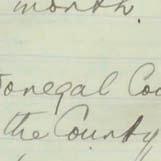 month.
Donegal Co
the County